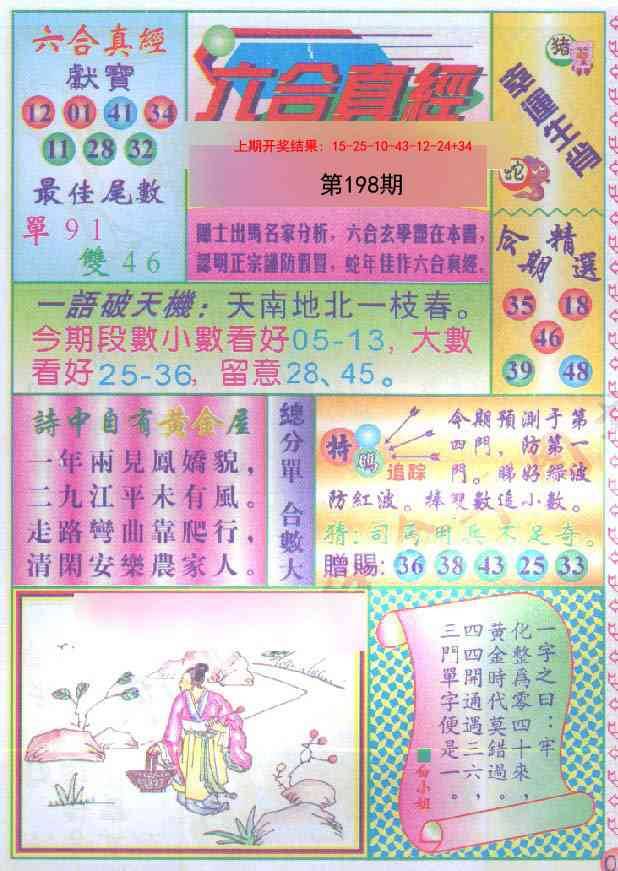 六合真經
獻寶
12 01 41 34
11 28 32
最佳尾數
單91
雙46
六合真經
上期开奖结果: 15-25-10-43-12-24+34
第198期
隱士出馬名家分析，六合玄學盡在本書，
認明正宗謹防假冒，蛇年佳作六合真經。
猪
蛇
今期精選
35 18
46
39 48
一語破天機：天南地北一枝春。
今期段數小數看好05-13，大數
看好25-36，留意28、45。
詩中自有黃金屋
一年兩見鳳嬌貌，
二九江平未有風。
走路彎曲靠爬行，
清閑安樂農家人。
總分單 合數大
特碼
追踪
今期預測于第
四門，防第一
門。睇好綠波
防紅波。捧雙數追小數。
猜：司馬用兵不足奇。
贈賜: 36 38 43 25 33
一字之曰：牢
化整爲零四十來，
黃金時代莫錯過。
四四開通遇三六，
三門單字便是一。
白小姐